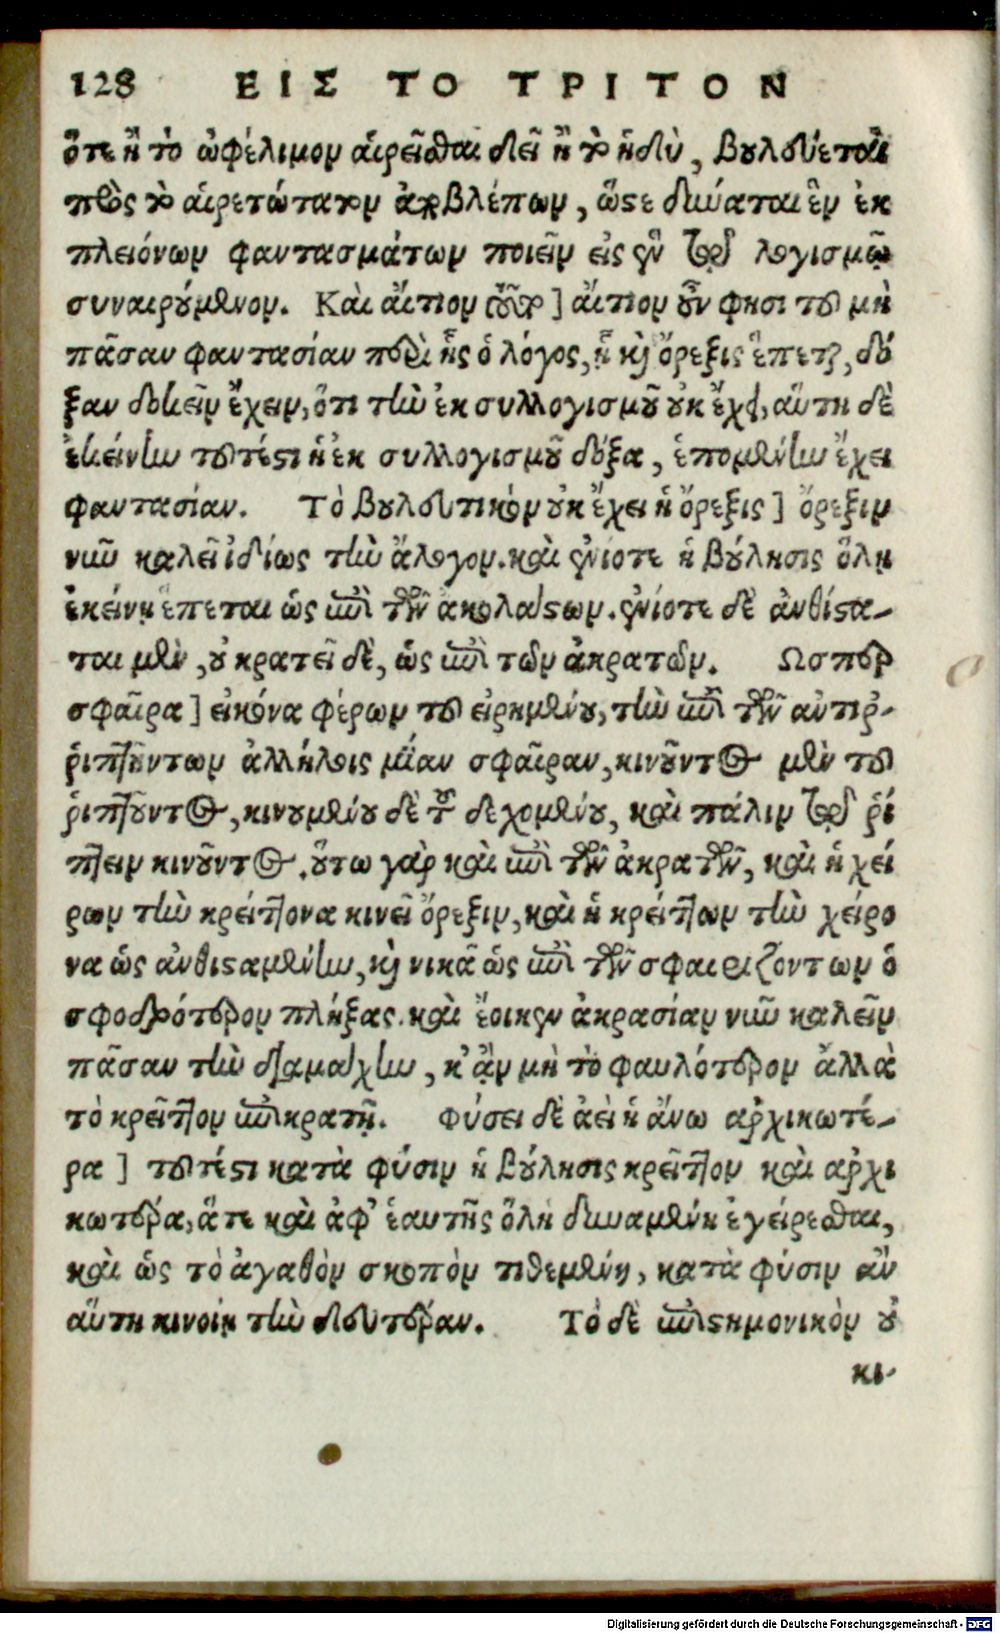 128 ΕΙΣ ΤΟ ΤΡΙΤΟΝ
ὅτε ἢ τὸ ὠφέλιμον αἱρεῖσθαι δεῖ ἢ τὸ ἡδὺ, βουλεύεται
πρὸς τὸ αἱρετώτατον ἀποβλέπων, ὥστε δύναται ἓν ἐκ
πλειόνων φαντασμάτων ποιεῖν εἰς ἓν ὑπὸ λογισμῷ
συναιρούμενον. Καὶ αἴτιον τοῦτο] αἴτιον οὖν φησι τοῦ μὴ
πᾶσαν φαντασίαν περὶ ἧς ὁ λόγος, ᾗ καὶ ὄρεξις ἕπεται, δό
ξαν δοκεῖν ἔχειν, ὅτι τὴν ἐκ συλλογισμοῦ οὐκ ἔχει, αὕτη δὲ
ἐκείνην τουτέστι ἡ ἐκ συλλογισμοῦ δόξα, ἑπομένην ἔχει
φαντασίαν. Τὸ βουλευτικὸν οὐκ ἔχει ἡ ὄρεξις] ὄρεξιν
νῦν καλεῖ ἰδίως τὴν ἄλογον. καὶ ἐνίοτε ἡ βούλησις ὅλη
ἐκείνῃ ἕπεται ὡς ἐπὶ τῶν ἀκολάστων. ἐνίοτε δὲ ἀνθίστα-
ται μὲν, οὐ κρατεῖ δὲ, ὡς ἐπὶ τῶν ἀκρατῶν. Ωσπερ
σφαῖρα] εἰκόνα φέρων τοῦ εἰρημένου, τὴν ἐπὶ τῶν ἀντιρ-
ῥιπτούντων ἀλλήλοις μίαν σφαῖραν, κινοῦντος μὲν τοῦ
ῥιπτοῦντος, κινουμένου δὲ τοῦ δεχομένου, καὶ πάλιν ὑπὸ ῥί
πτειν κινοῦντος. οὕτω γὰρ καὶ ἐπὶ τῶν ἀκρατῶν, καὶ ἡ χεί
ρων τὴν κρείττονα κινεῖ ὄρεξιν, καὶ ἡ κρείττων τὴν χείρο
να ὡς ἀνθισταμένην, καὶ νικᾶ ὡς ἐπὶ τῶν σφαιριζόντων ὁ
σφοδρότερον πλήξας. καὶ ἔοικεν ἀκρασίαν νῦν καλεῖν
πᾶσαν τὴν διαμάχην, κ' ἂν μὴ τὸ φαυλότερον ἀλλὰ
τὸ κρεῖττον ἐπικρατῇ. Φύσει δὲ ἀεὶ ἡ ἄνω ἀρχικωτέ-
ρα] τουτέστι κατὰ φύσιν ἡ βούλησις κρεῖττον καὶ ἀρχι
κωτέρα, ἅτε καὶ ἀφ' ἑαυτῆς ὅλη δυναμένη ἐγείρεσθαι,
καὶ ὡς τὸ ἀγαθὸν σκοπὸν τιθεμένη, κατὰ φύσιν ἂν
αὕτη κινοίη τὴν δευτέραν. Τὸ δὲ ἐπιστημονικὸν οὐ
κι-
Digitalisierung gefördert durch die Deutsche Forschungsgemeinschaft - DFG